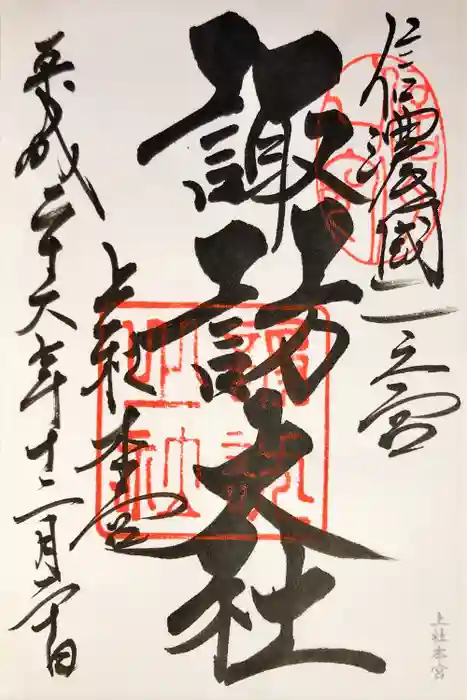 信濃國一之宮
諏訪大社
上社本宮
平成二十六年十二月六日
上社本宮